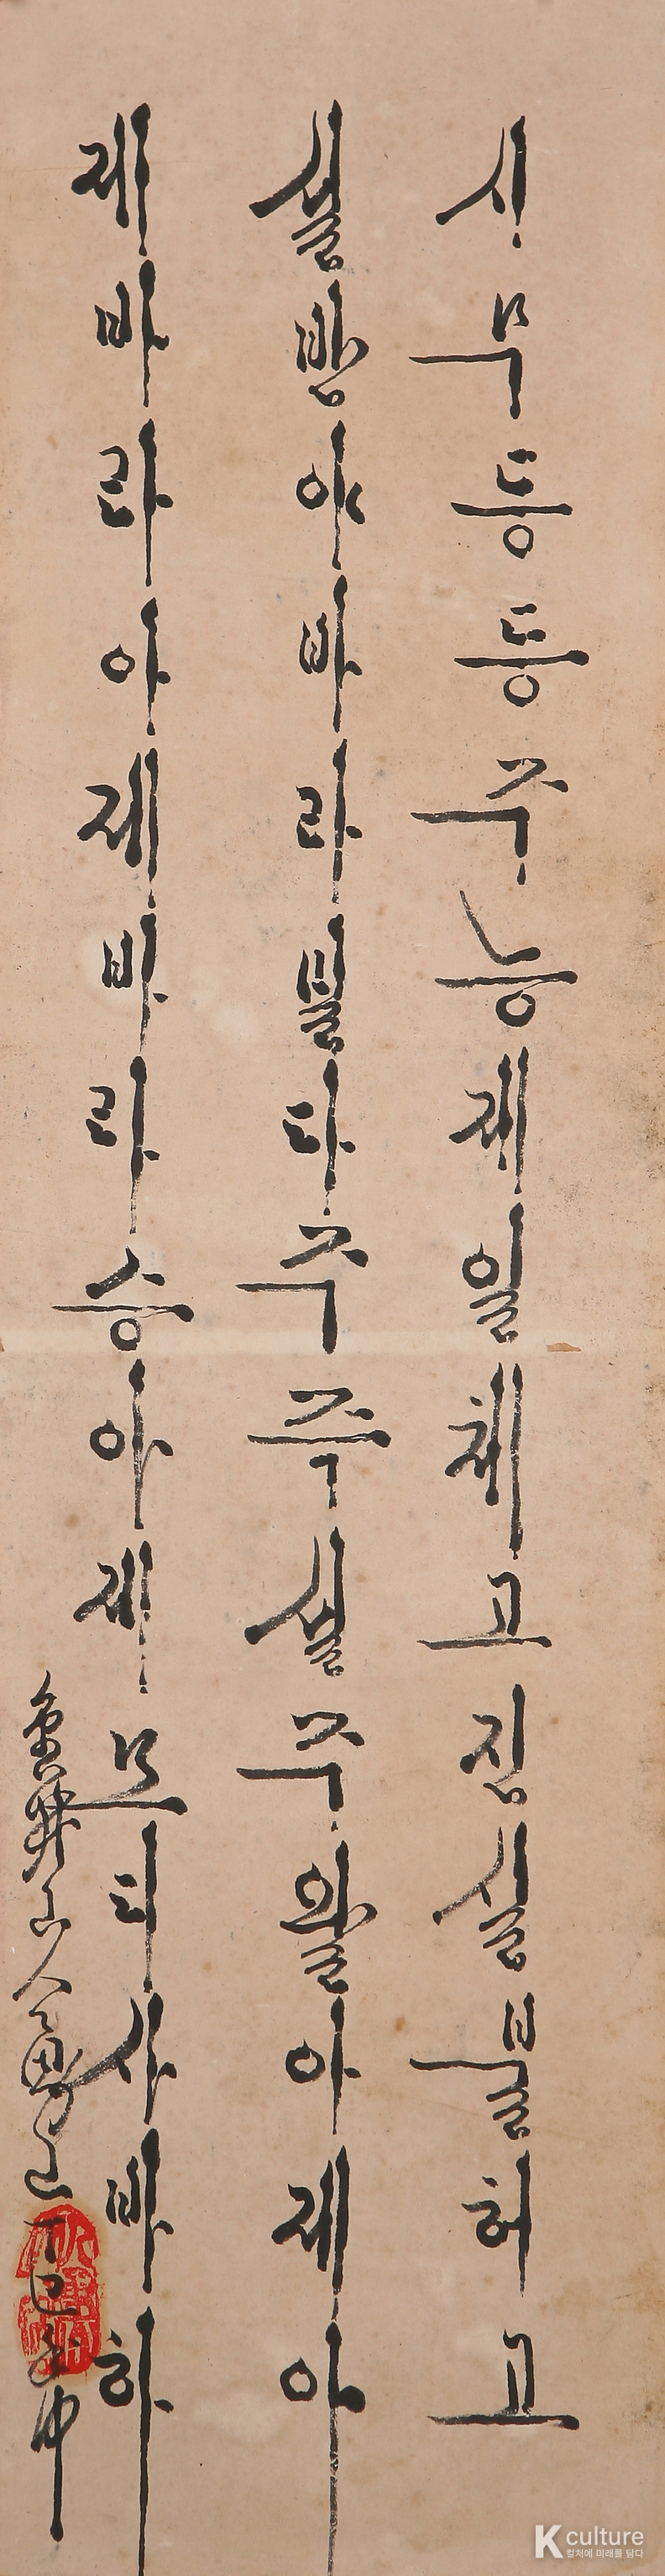 시무등등주능제일체고진실불허고
설반야바라밀다주즉설주왈아제아
제바라아제바라승아제모디사바하
山人 丁巳 中
K culture
컬처에 미래를 담다